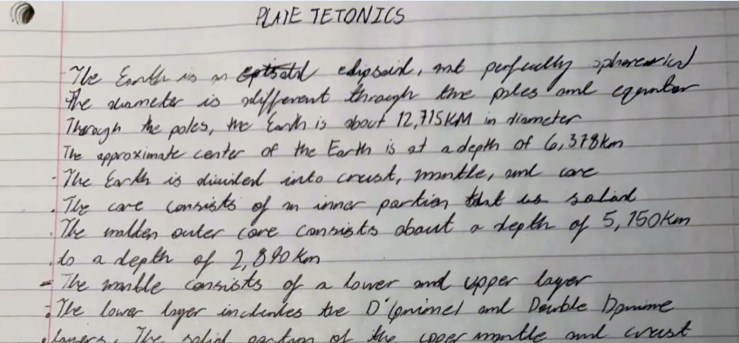 PLATE TETONICS
The Earth is an elipsoid, not perfectly
The diameter is different through the poles and equator
Through the poles, the Earth is about 12,715KM in diameter
The approximate center of the Earth is at a depth of 6,378km
- The Earth is divided into crust, mantle, and core
. The core consists of an inner portion that is solid
. The molten outer core consists about a depth of 5,150km
to a depth of 2,890km
- The mantle consists of a lower and upper layer
- The lower layer includes the D' (prime) and Double Dprime
layers. The solid portion of the upper mantle and crust